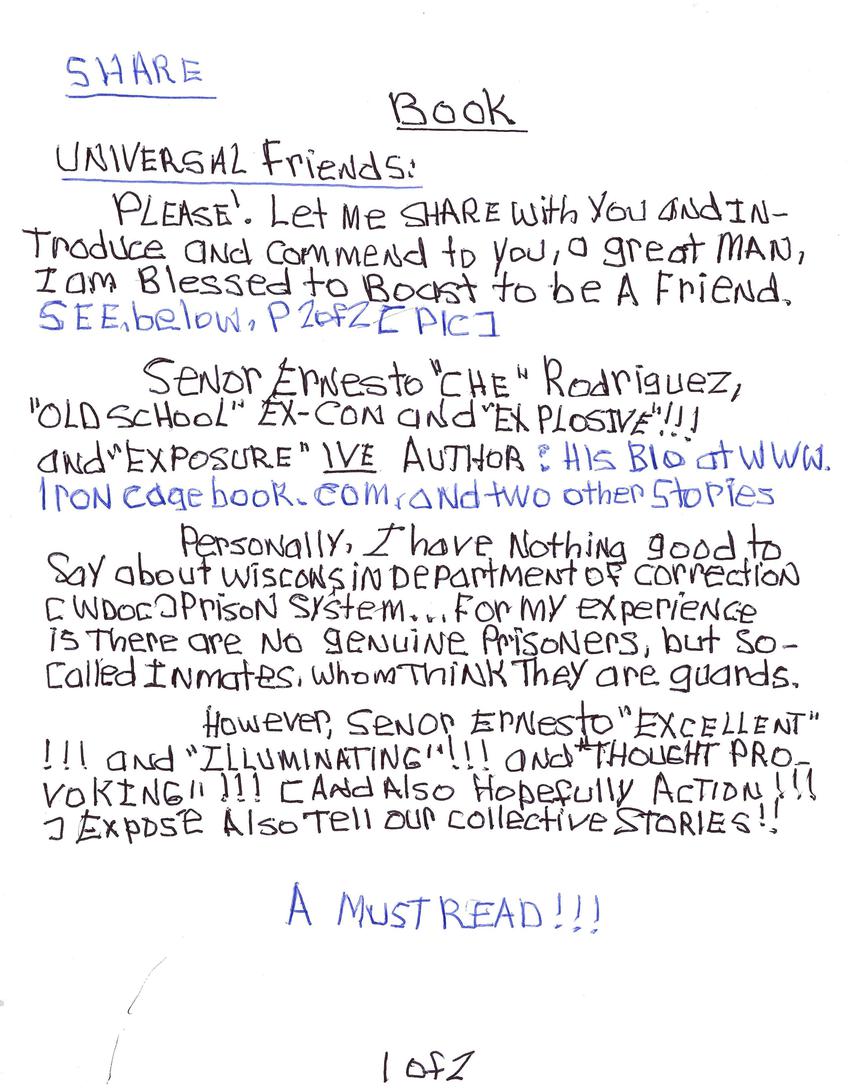 SHARE
Book
UNIVERSAL Friends:
PLEASE'. Let Me SHARE with You and IN-
Troduce and commend to you, a great MAN,
I am Blessed to Boast to be A Friend.
SEE, below, P 2of2 [PIC]
Senor Ernesto "CHE" Rodriguez,
"OLD SCHOOL" EX-CON and "EXPLOSIVE"!!!
and "EXPOSURE" IVE AUTHOR: His BIO at WWW.
Iron cagebook.com, and two other Stories
Personally, I have Nothing good to
Say about Wisconsin Department of correction
[WDOC] Prison System... For my experience
is There are No genuine Prisoners, but so-
Called Inmates, whom Think They are guards.
However, Senor Ernesto "EXCELLENT"
!!! and "ILLUMINATING"!!! and "THOUGHT PRO-
VOKING" !!! [And Also Hopefully ACTION !!!
] Expose Also Tell our collective STORIES!!
A MUST READ!!!
1 of 2